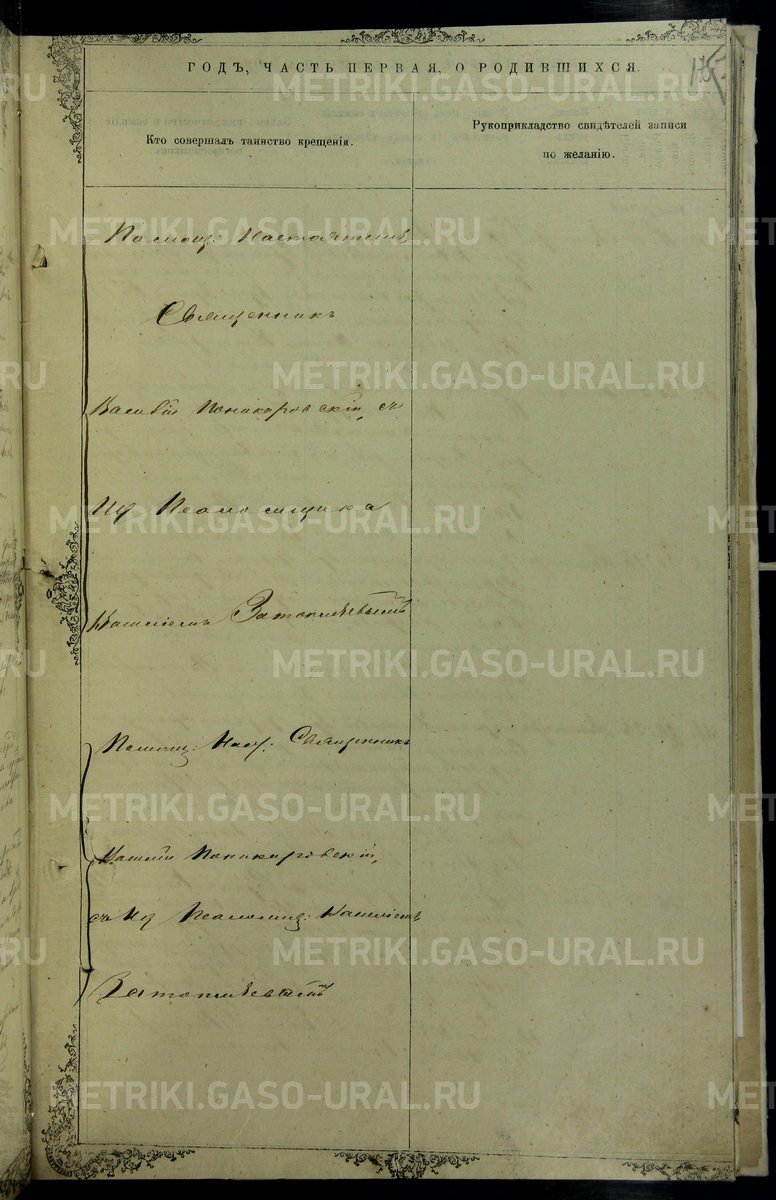 ГОДЪ, ЧАСТЬ ПЕРВАЯ, О РОДИВШИХСЯ.
Кто совершалъ таинство крещенія.
Рукоприкладство свидѣтелей записи
по желанію.
Помощ: Настоятеля
Священникъ
Василій Поникаровскій, съ
Ид Псаломщика
Василіемъ Затопляевымъ
Помощ: Наст. Священникъ
Василій Поникаровскій,
съ Ид Псаломщ: Василіемъ
Затопляевымъ
METRIKI.GASO-URAL.RU